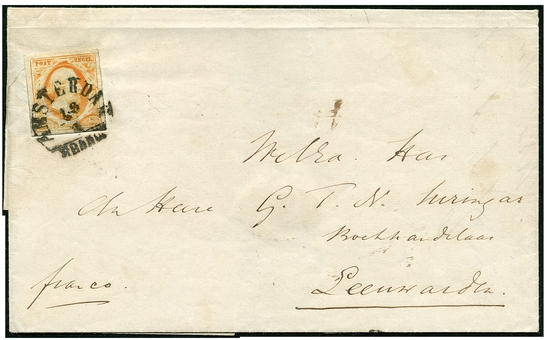 POST ZEGEL
AMSTERDAM
FRANCO
Weled. Heer
den Heere G. T. N. Suringar
Boekhandelaar
franco.
Leeuwarden.